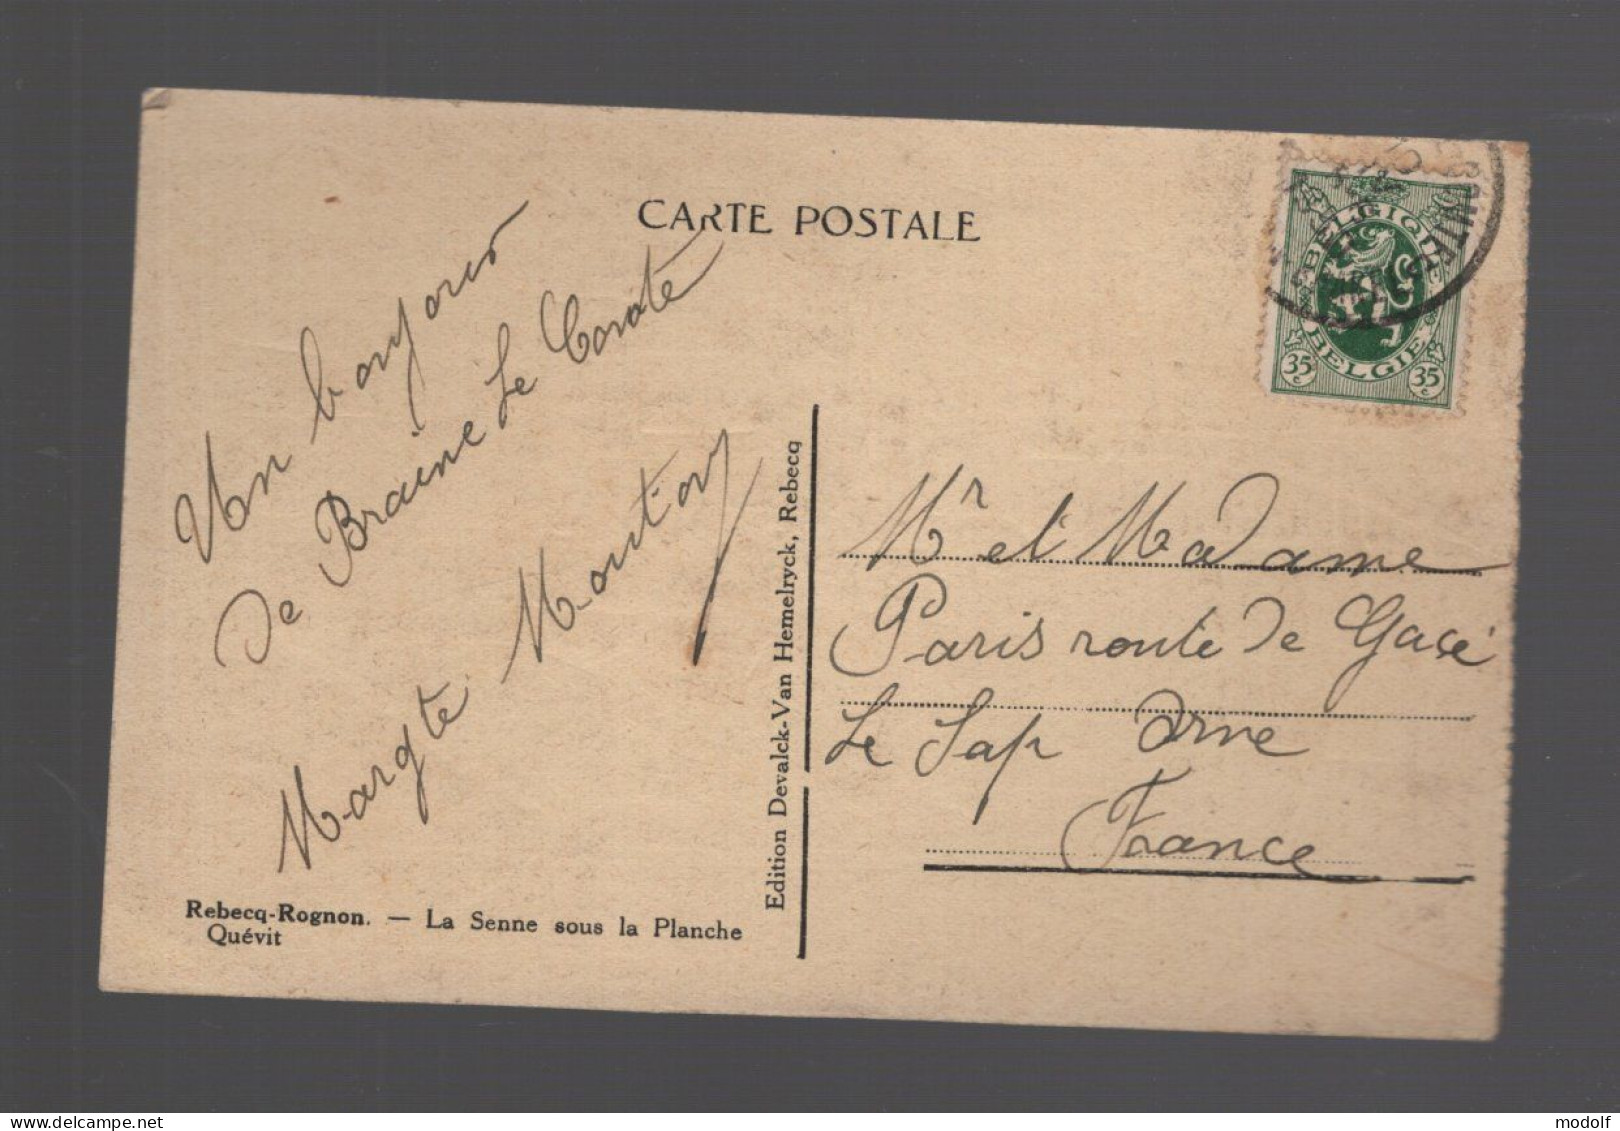 CARTE POSTALE
BELGIQUE
BELGIE
35 c
35 c
Un bonjour
de Braine le Comte
Margte Moution
Edition Devalck-Van Hemelryck, Rebecq
Mr et Madame
Paris route de Gacé
Le Sap Orne
France
Rebecq-Rognon. — La Senne sous la Planche
Quévit
modolf